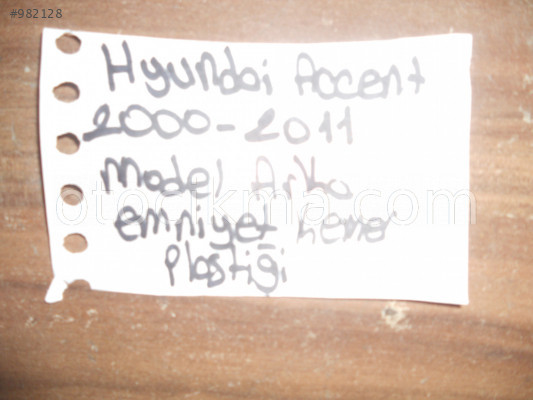 #982128
Hyundai Accent
2000-2011
Model Arka
otocikma.com
emniyet kemer
Plastiği